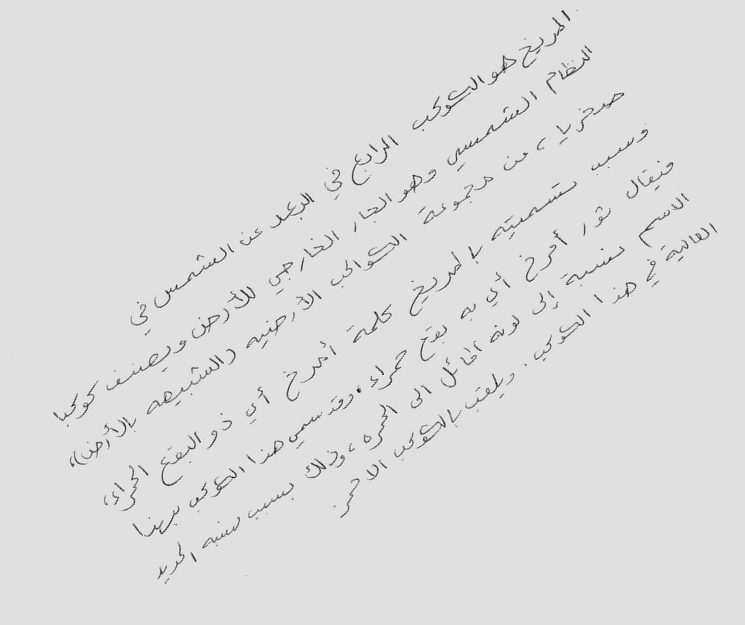 المريخ هو الكوكب الرابع في البعد عن الشمس في
النظام الشمسي وهو الجار الخارجي للأرض ويصنف كوكبا
صخريا، من مجموعة الكواكب الأرضيه (الشبيهه بالأرض)،
وسبب تسميته بالمريخ كلمة أمرخ أي ذو البقع الحمراء،
فيقال ثور أمرخ أي به بقع حمراء، وقد سمي هذا الكوكب بهذا
الاسم نسبة إلى لونه المائل الى الحمره، وذلك بسبب نسبه الحديد
العالية في هذا الكوكب. ويلقب بالكوكب الاحمر